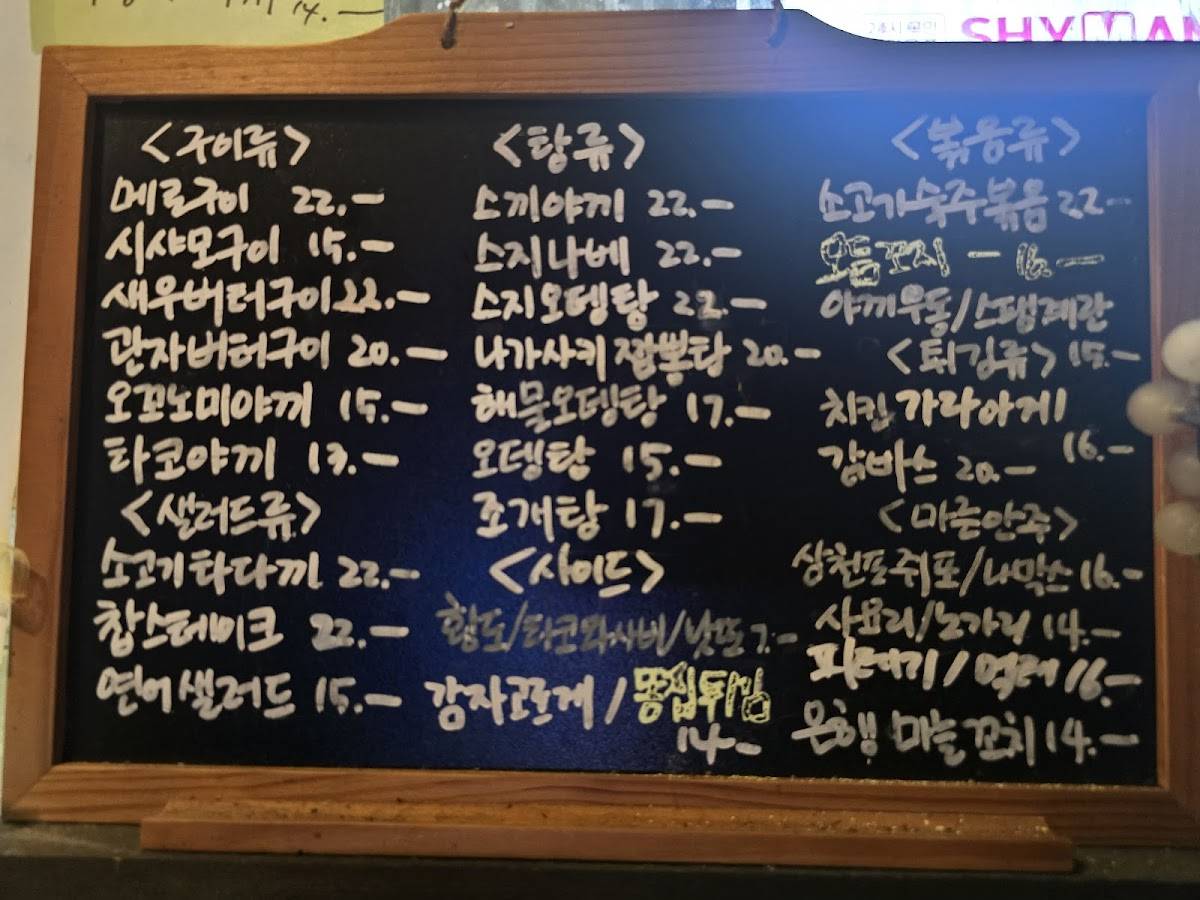 14.—
SHYMAN
<구이류>
메로구이 22.—
시샤모구이 15.—
새우버터구이 22.—
관자버터구이 20.—
오꼬노미야끼 15.—
타코야끼 13.—
<샐러드류>
소고기타다끼 22.—
찹스테이크 22.—
연어샐러드 15.—
<탕류>
스끼야끼 22.—
스지나베 22.—
스지오뎅탕 22.—
나가사키짬뽕탕 20.—
해물오뎅탕 17.—
오뎅탕 15.—
조개탕 17.—
<사이드>
황도/타코와사비/낫또 7.—
감자고로게/똥집튀김
14—
<볶음류>
소고기숙주볶음 22—
16.—
야끼우동/스팸계란
<튀김류> 15.—
치킨가라아게
16.—
감바스 20.—
<마른안주>
삼천포쥐포/나막스 16.—
사요리/노가리 14.—
피데기/먹태 16.—
은행 마늘꼬치 14.—